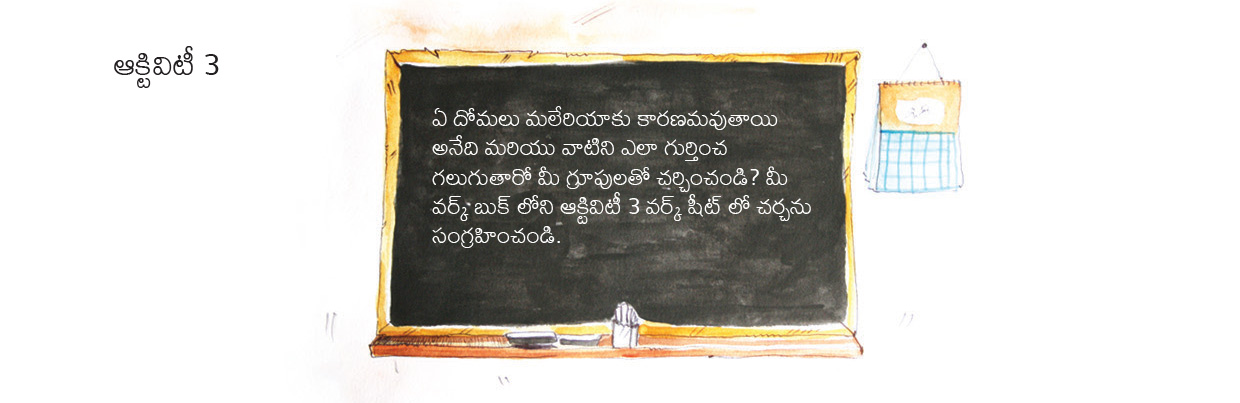 ఆక్టివిటీ 3
ఏ దోమలు మలేరియాకు కారణమవుతాయి
అనేది మరియు వాటిని ఎలా గుర్తించ
గలుగుతారో మీ గ్రూపులతో చర్చించండి? మీ
వర్క్ బుక్ లోని ఆక్టివిటీ 3 వర్క్ షీట్ లో చర్చను
సంగ్రహించండి.